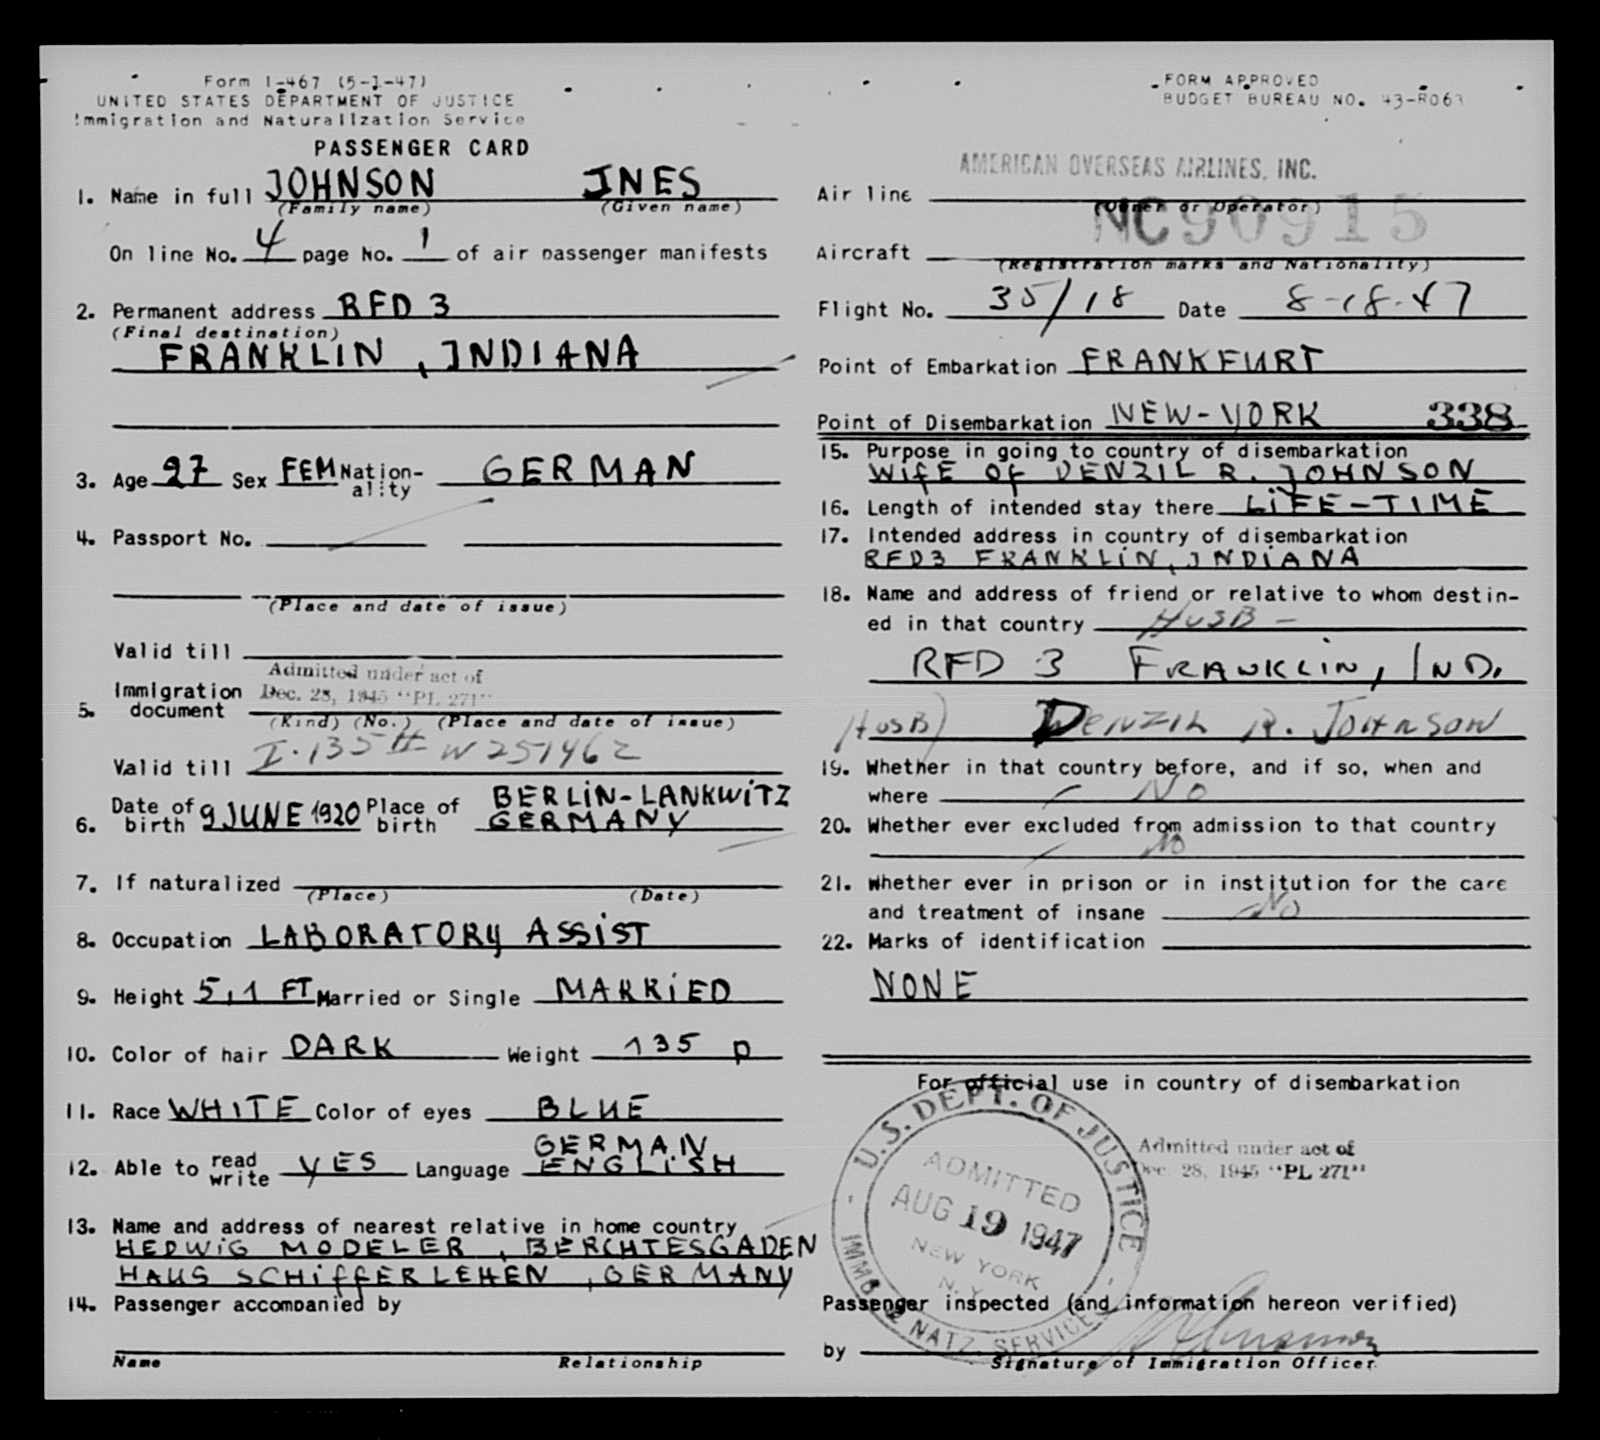 Form I-467 (5-1-47)
UNITED STATES DEPARTMENT OF JUSTICE
Immigration and Naturalization Service
PASSENGER CARD
1. Name in full JOHNSON INES
(Family name) (Given name)
On line No. 4 page No. 1 of air passenger manifests
2. Permanent address RFD 3
(Final destination)
FRANKLIN, INDIANA
3. Age 27 Sex FEM Nation-
ality GERMAN
4. Passport No.
(Place and date of issue)
Valid till
Admitted under act of
Dec. 28, 1945 "PL 271"
5. Immigration document
(Kind) (No.) (Place and date of issue)
Valid till I-135 W251462
6. Date of birth 9 JUNE 1920 Place of birth BERLIN-LANKWITZ
GERMANY
7. If naturalized
(Place) (Date)
8. Occupation LABORATORY ASSIST
9. Height 5,1 FT Married or Single MARRIED
10. Color of hair DARK Weight 135 p
11. Race WHITE Color of eyes BLUE
12. Able to read write YES Language GERMAN
ENGLISH
13. Name and address of nearest relative in home country
HEDWIG MODELER, BERCHTESGADEN
HAUS SCHIFFERLEHEN, GERMANY
14. Passenger accompanied by
Name Relationship
FORM APPROVED
BUDGET BUREAU NO. 43-R063
AMERICAN OVERSEAS AIRLINES, INC.
Air line
(Owner or Operator)
NC90915
Aircraft
(Registration marks and Nationality)
Flight No. 35/18 Date 8-18-47
Point of Embarkation FRANKFURT
Point of Disembarkation NEW-YORK 338
15. Purpose in going to country of disembarkation
WIFE OF DENZIL R. JOHNSON
16. Length of intended stay there LIFE-TIME
17. Intended address in country of disembarkation
RFD3 FRANKLIN, INDIANA
18. Name and address of friend or relative to whom destin-
ed in that country HUSB -
RFD 3 FRANKLIN, IND.
HUSB) DENZIL R. JOHNSON
19. Whether in that country before, and if so, when and
where No
20. Whether ever excluded from admission to that country
No
21. Whether ever in prison or in institution for the care
and treatment of insane No
22. Marks of identification
NONE
For official use in country of disembarkation
U.S. DEPT. OF JUSTICE
IMMG. & NATZ. SERVICE
ADMITTED
AUG 19 1947
NEW YORK
N.Y.
Admitted under act of
Dec. 28, 1945 "PL 271"
Passenger inspected (and information hereon verified)
by
Signature of Immigration Officer